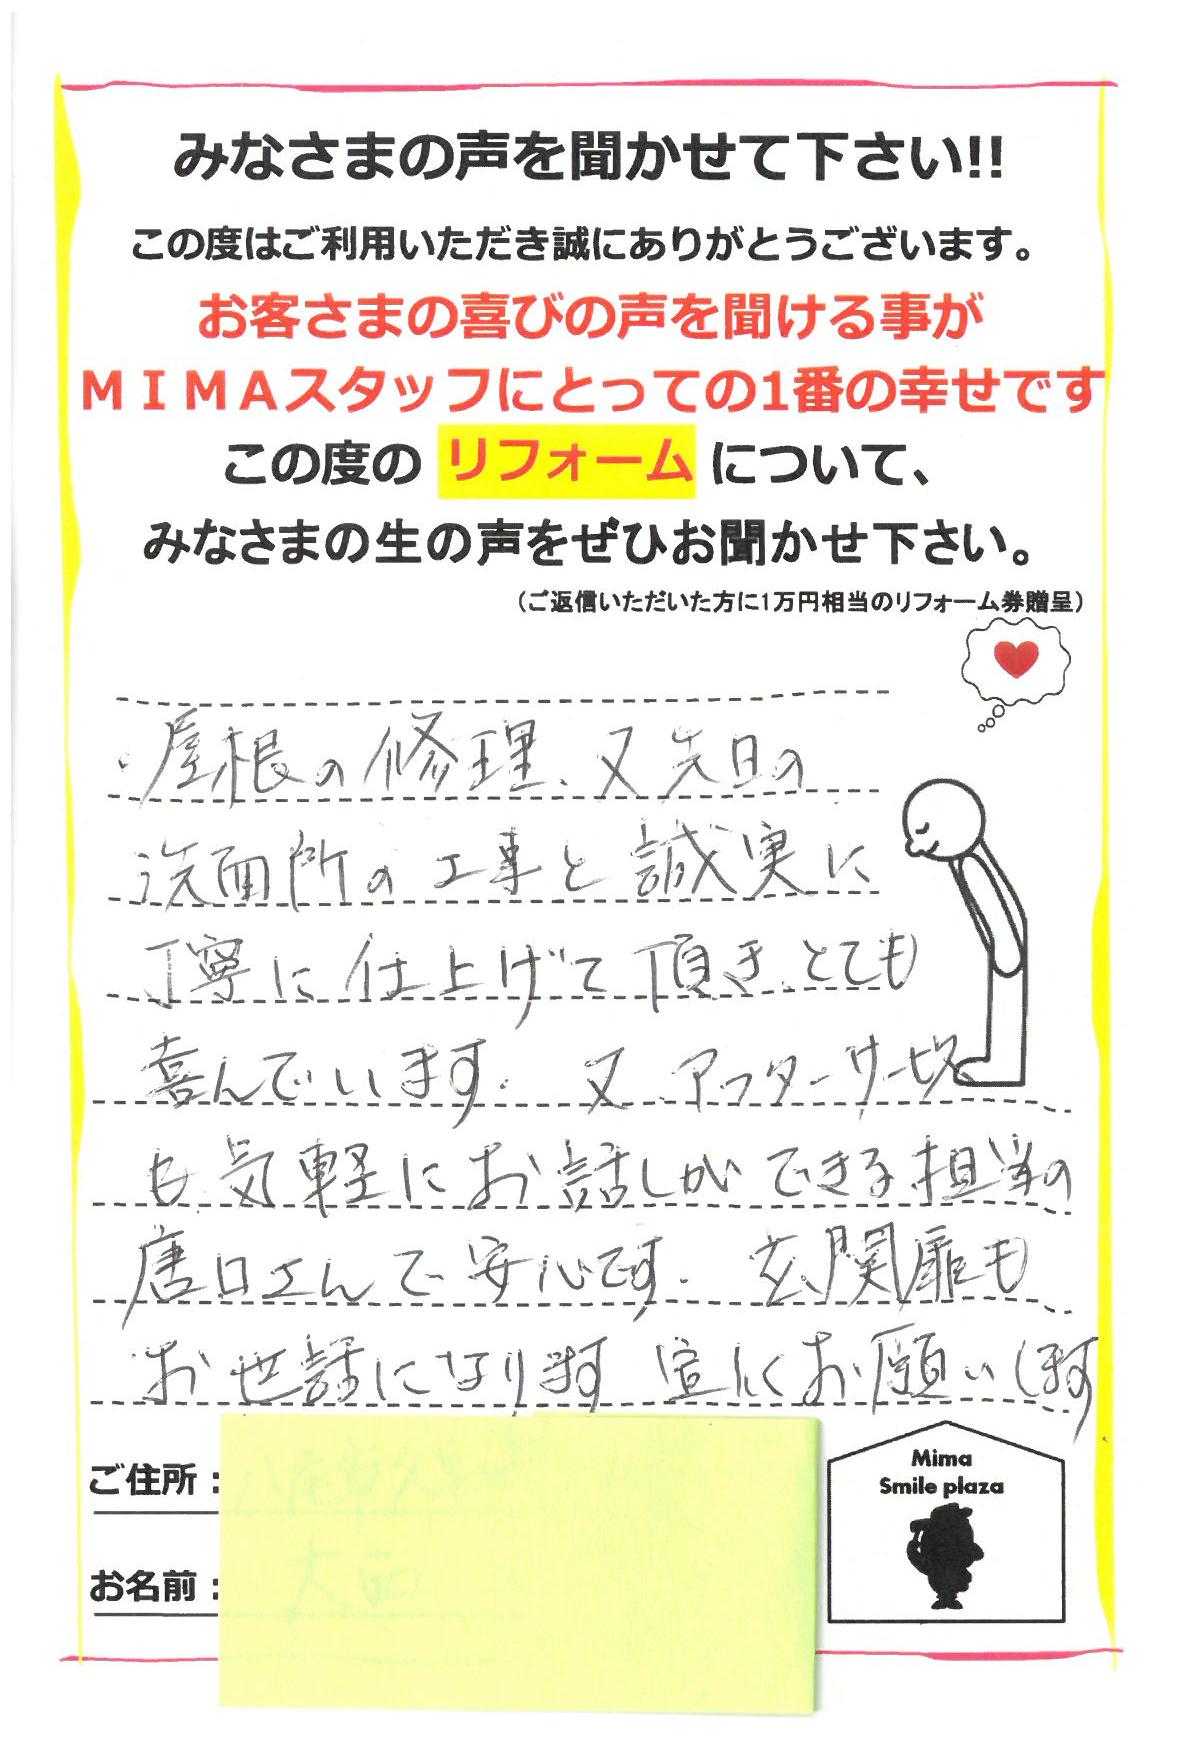 みなさまの声を聞かせて下さい!!
この度はご利用いただき誠にありがとうございます。
お客さまの喜びの声を聞ける事が
ＭＩＭＡスタッフにとっての1番の幸せです
この度の リフォーム について、
みなさまの生の声をぜひお聞かせ下さい。
（ご返信いただいた方に1万円相当のリフォーム券贈呈）
・屋根の修理、又先日の
洗面所の工事と誠実に
丁寧に仕上げて頂き、とても
喜んでいます。又、アフターサービス
も気軽にお話しができる担当の
唐口さんで安心です。玄関扉も
お世話になります 宜しくお願いします
ご住所：
お名前：
Mima
Smile plaza